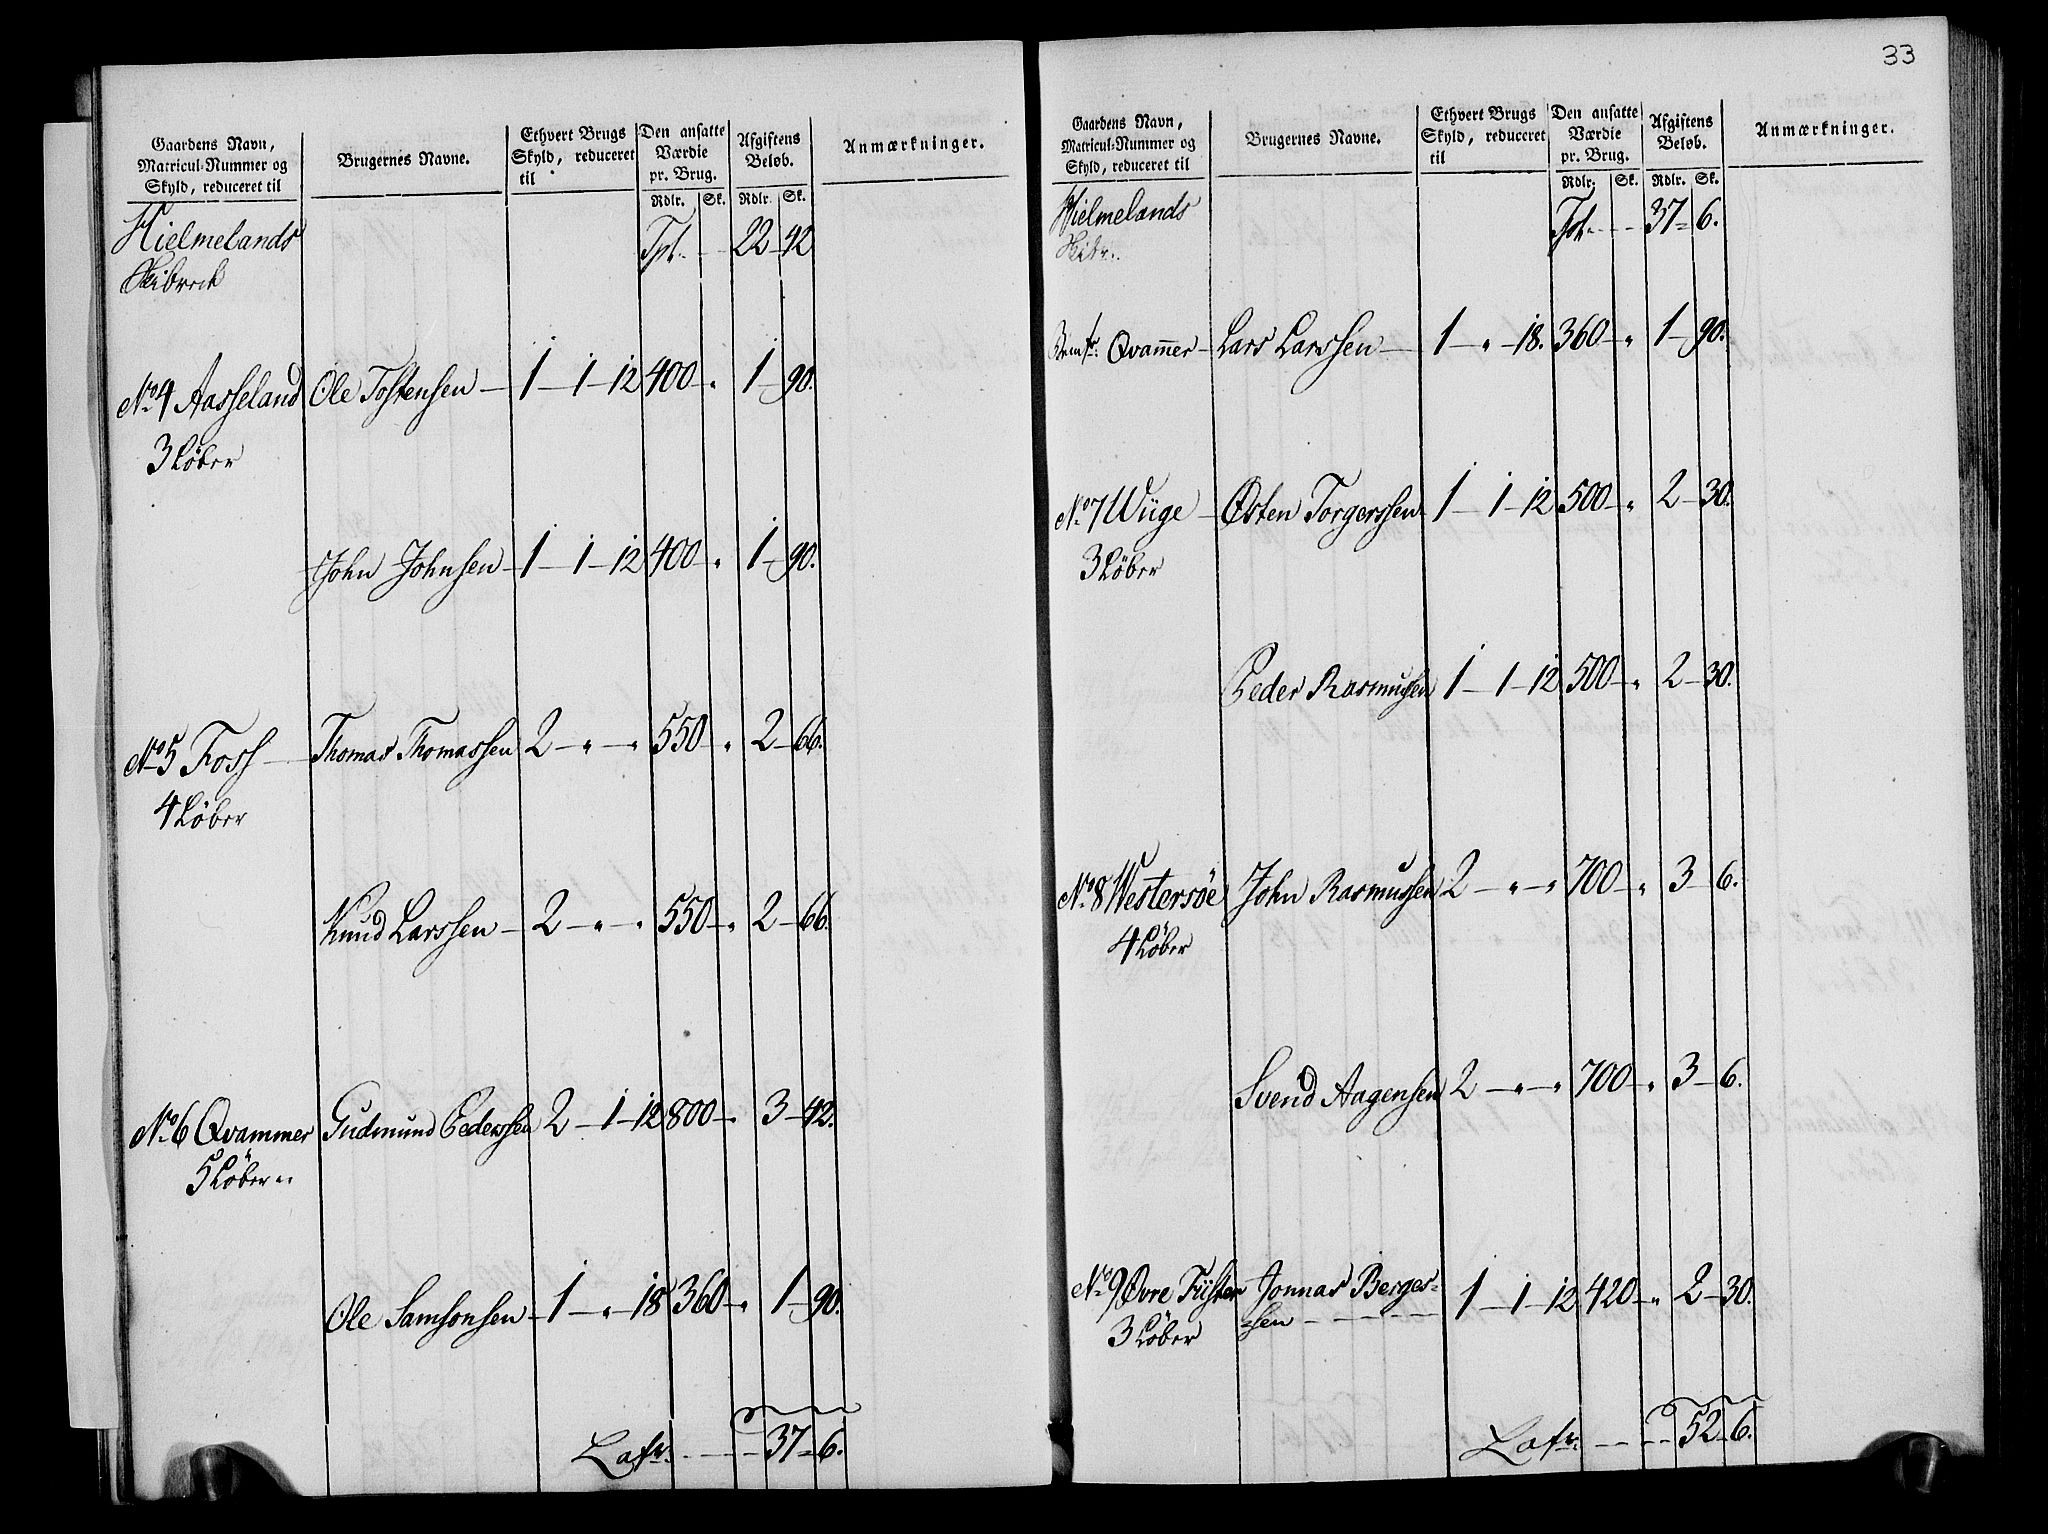 Gaardens Navn, Matricul-Nummer og Skyld, reduceret til | Brugernes Navne. | Ethvert Brugs Skyld, reduceret til | Den ansatte Værdie pr. Brug. Rdlr. Sk. | Afgiftens Beløb. Rdlr. Sk. | Anmærkninger.
Hielmelands Tpt. 22 - 42
Skibreed
No 4 Aasseland Ole Tostensen 1 - 1 - 12 400 - " 1 - 90.
3 Løber
John Johnsen 1 - 1 - 12 400 - " 1 - 90.
No 5 Foss Thomas Thomassen 2 - " - " 550 " 2 - 66.
4 Løber
Knud Larssen 2 - " - " 550 - " 2 - 66.
No 6 Qvammer Gudmund Pederssen 2 - 1 - 12 800 - " 3 - 42.
5 Løber "
Ole Samsonsen 1 - " - 18 360 - " 1 - 90.
Lafr. 37 - 6.
33
Gaardens Navn, Matricul-Nummer og Skyld, reduceret til | Brugernes Navne. | Ethvert Brugs Skyld, reduceret til | Den ansatte Værdie pr. Brug. Rdlr. Sk. | Afgiftens Beløb. Rdlr. Sk. | Anmærkninger.
Hielmelands Tpt. 37 - 6.
Skibr.
Qvam̅er Lars Larssen 1 - " - 18. 360 - " 1 - 90.
No 7 Wiige Østen Torgerssen 1 - 1 - 12 500 - " 2 - 30.
3 Løber
Peder Rasmussen 1 - 1 - 12 500 - " 2 - 30.
No 8 Westersøe John Rasmussen 2 - " - " 700 - " 3 - 6.
4 Løber
Svend Aagensen 2 - " - " 700 - " 3 - 6.
No 9 Øvre Tÿster Jonnas Berges-
3 Løber sen 1 - 1 - 12 420 - " 2 - 30.
Lafr. 52 - 6.